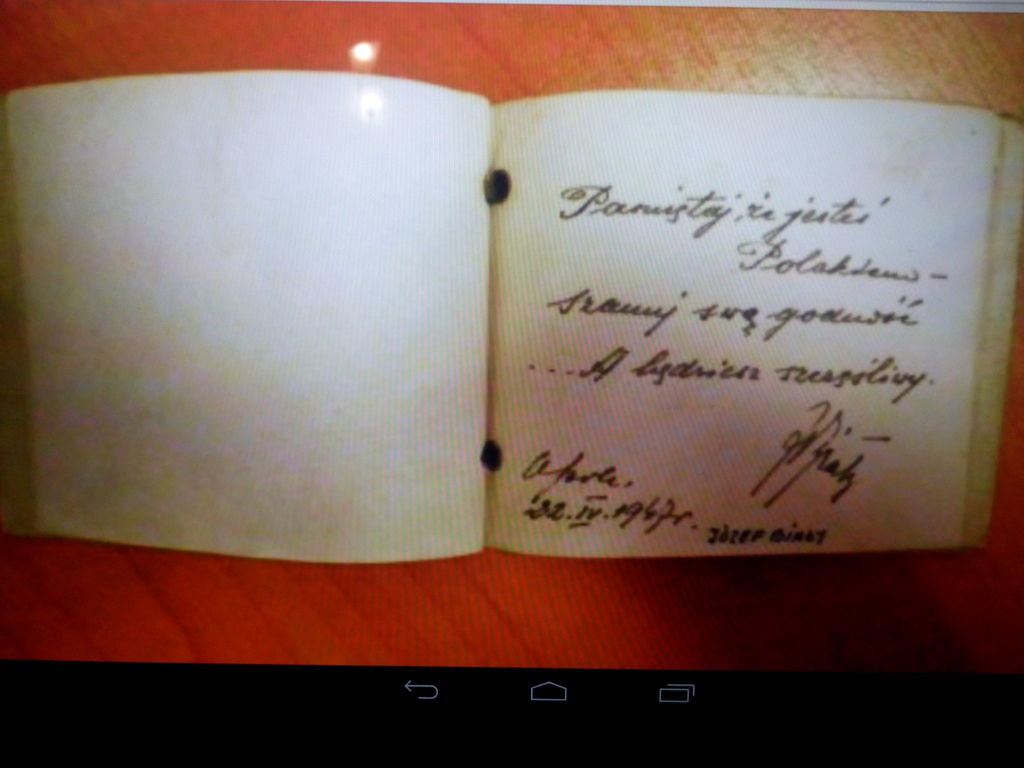 Pamiętaj, że jesteś
Polakiem –
szanuj swą godność
...A będziesz szczęśliwy.
22.IV.1947r.
JÓZEF